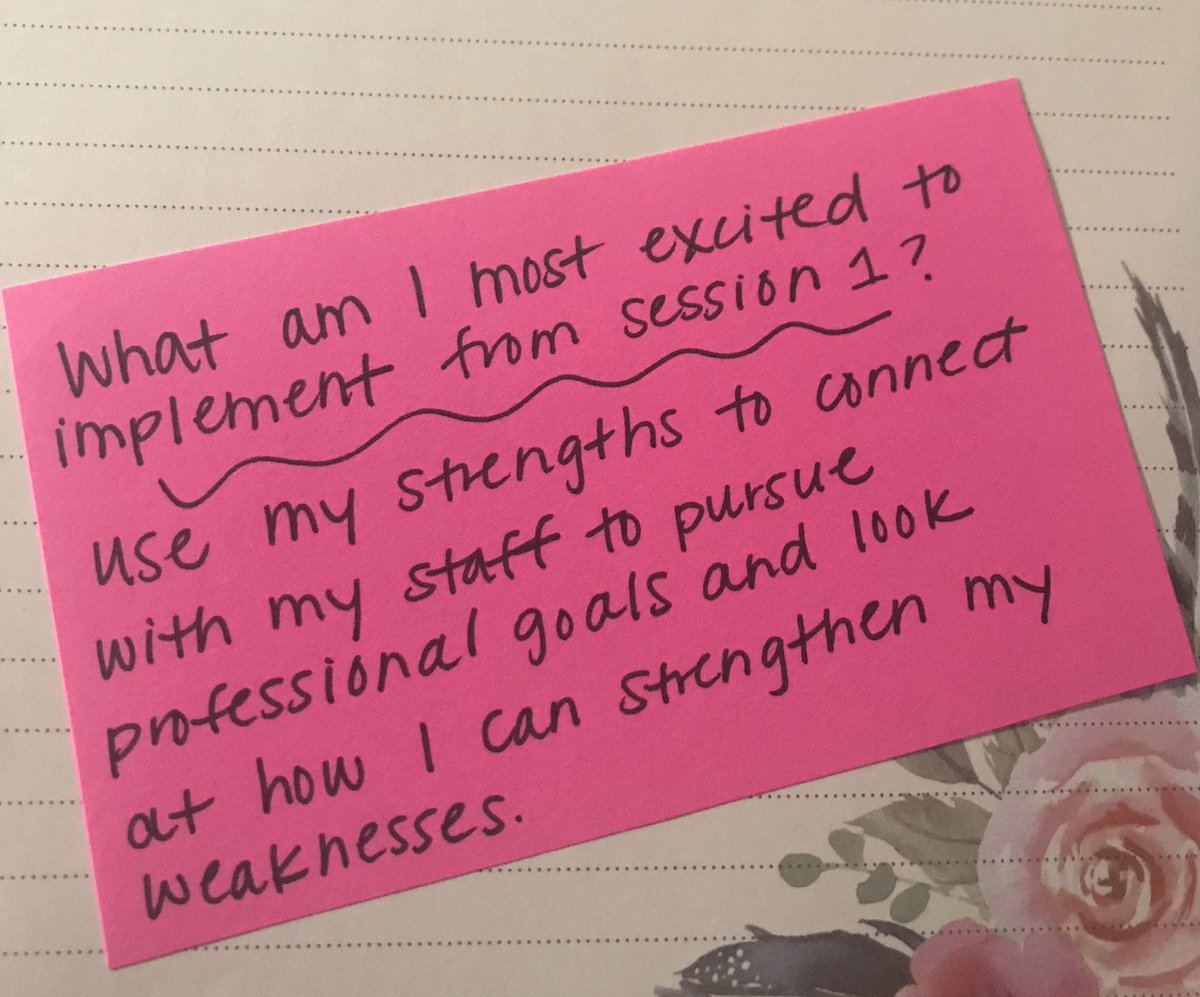 What am I most excited to
implement from session 1?
use my strengths to connect
with my staff to pursue
professional goals and look
at how I can strengthen my
weaknesses.